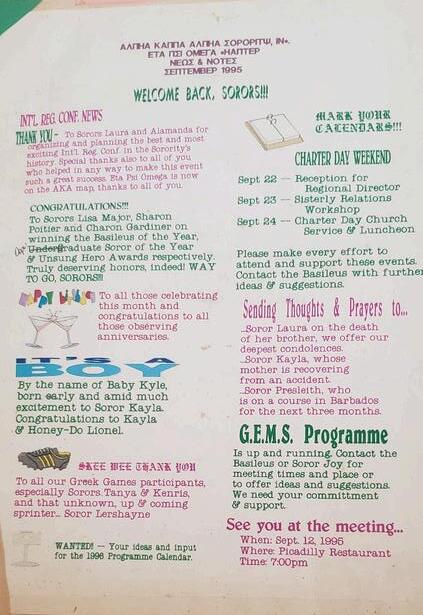 ΑΛΠΗΑ ΚΑΠΠΑ ΑΛΠΗΑ ΣΟΡΟΡΙΤΨ, ΙΝ«.
ΕΤΑ ΠΣΙ ΟΜΕΓΑ «ΗΑΠΤΕΡ
ΝΕΩΣ & ΝΟΤΕΣ
ΣΕΠΤΕΜΒΕΡ 1995
WELCOME BACK, SORORS!!!
INT'L REG. CONF. NEWS
THANK YOU - To Sorors Laura and Alamanda for
organizing and planning the best and most
exciting Int'l Reg. Conf. in the Sorority's
history. Special thanks also to all of you
who helped in any way to make this event
such a great success. Eta Psi Omega is now
on the AKA map, thanks to all of you.
CONGRATULATIONS!!!
To Sorors Lisa Major, Sharon
Poitier and Charon Gardiner on
winning the Basileus of the Year,
Undergraduate Soror of the Year
& Unsung Hero Awards respectively.
Truly deserving honors, indeed! WAY
TO GO, SORORS!!!
HAPPY BIRTHDAY To all those celebrating
this month and
congratulations to all
those observing
anniversaries.
IT'S A
BOY
By the name of Baby Kyle,
born early and amid much
excitement to Soror Kayla.
Congratulations to Kayla
& Honey-Do Lionel.
SKEE WEE THANK YOU
To all our Greek Games participants,
especially Sorors Tanya & Kenris,
and that unknown, up & coming
sprinter... Soror Lershayne
WANTED! — Your ideas and input
for the 1996 Programme Calendar.
MARK YOUR
CALENDARS!!!
CHARTER DAY WEEKEND
Sept 22 — Reception for
Regional Director
Sept 23 — Sisterly Relations
Workshop
Sept 24 — Charter Day Church
Service & Luncheon
Please make every effort to
attend and support these events.
Contact the Basileus with further
ideas & suggestions.
Sending Thoughts & Prayers to...
...Soror Laura on the death
of her brother, we offer our
deepest condolences.
...Soror Kayla, whose
mother is recovering
from an accident.
...Soror Presleith, who
is on a course in Barbados
for the next three months.
G.E.M.S. Programme
Is up and running. Contact the
Basileus or Soror Joy for
meeting times and place or
to offer ideas and suggestions.
We need your commitment
& support.
See you at the meeting...
When: Sept. 12, 1995
Where: Picadilly Restaurant
Time: 7:00pm